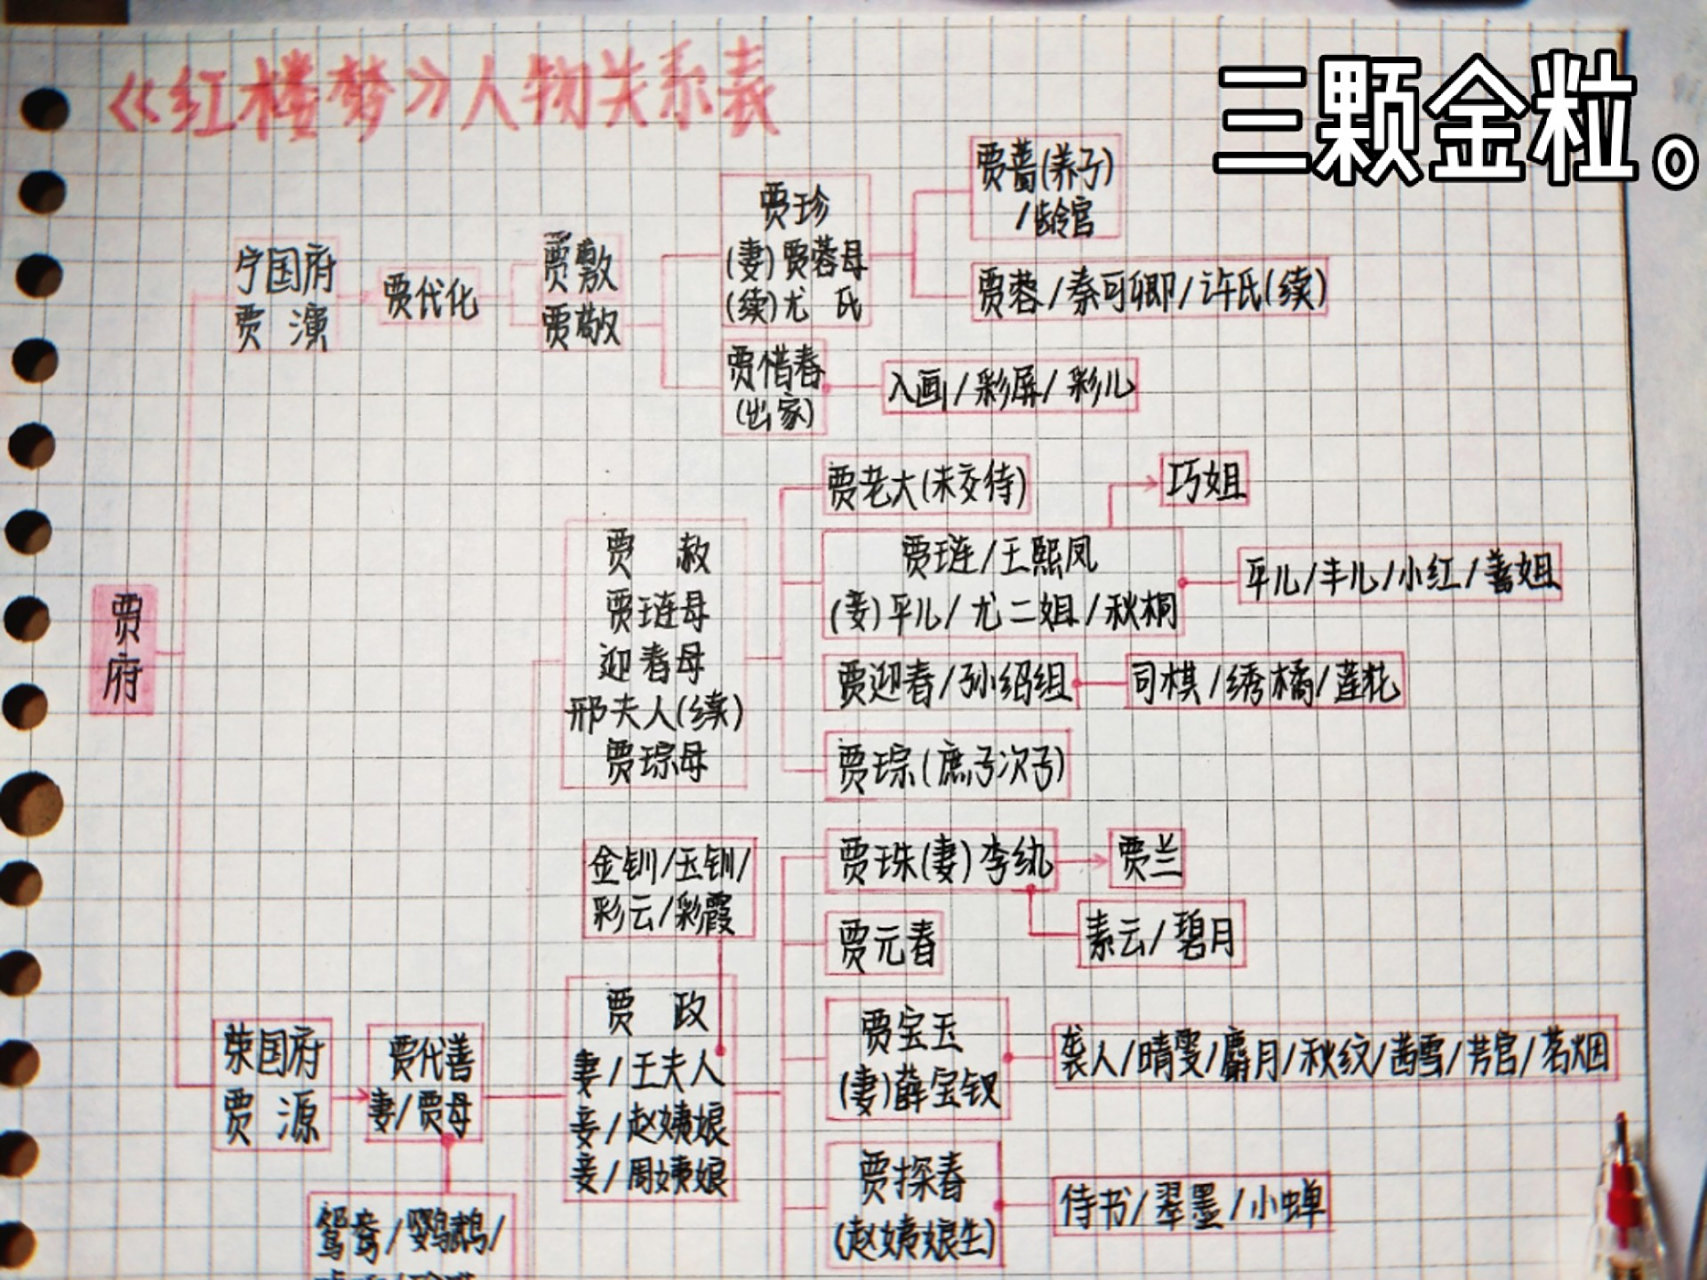 《红楼梦》人物关系表
三颗金粒。
贾府
宁国府
贾演
贾代化
贾敷
贾敬
贾珍
(妻)贾蓉母
(续)尤氏
贾蔷(养子)
/龄官
贾蓉/秦可卿/许氏(续)
贾惜春
(出家)
入画/彩屏/彩儿
贾赦
贾琏母
迎春母
邢夫人(续)
贾琮母
贾老大(未交待)
贾琏/王熙凤
(妾)平儿/尤二姐/秋桐
巧姐
平儿/丰儿/小红/善姐
贾迎春/孙绍组
司棋/绣橘/莲花
贾琮(庶子次子)
荣国府
贾源
贾代善
妻/贾母
鸳鸯/鹦鹉/
金钏/玉钏/
彩云/彩霞
贾政
妻/王夫人
妾/赵姨娘
妾/周姨娘
贾珠(妻)李纨
贾兰
素云/碧月
贾元春
贾宝玉
(妻)薛宝钗
袭人/晴雯/麝月/秋纹/茜雪/芳官/茗烟
贾探春
(赵姨娘生)
侍书/翠墨/小蝉